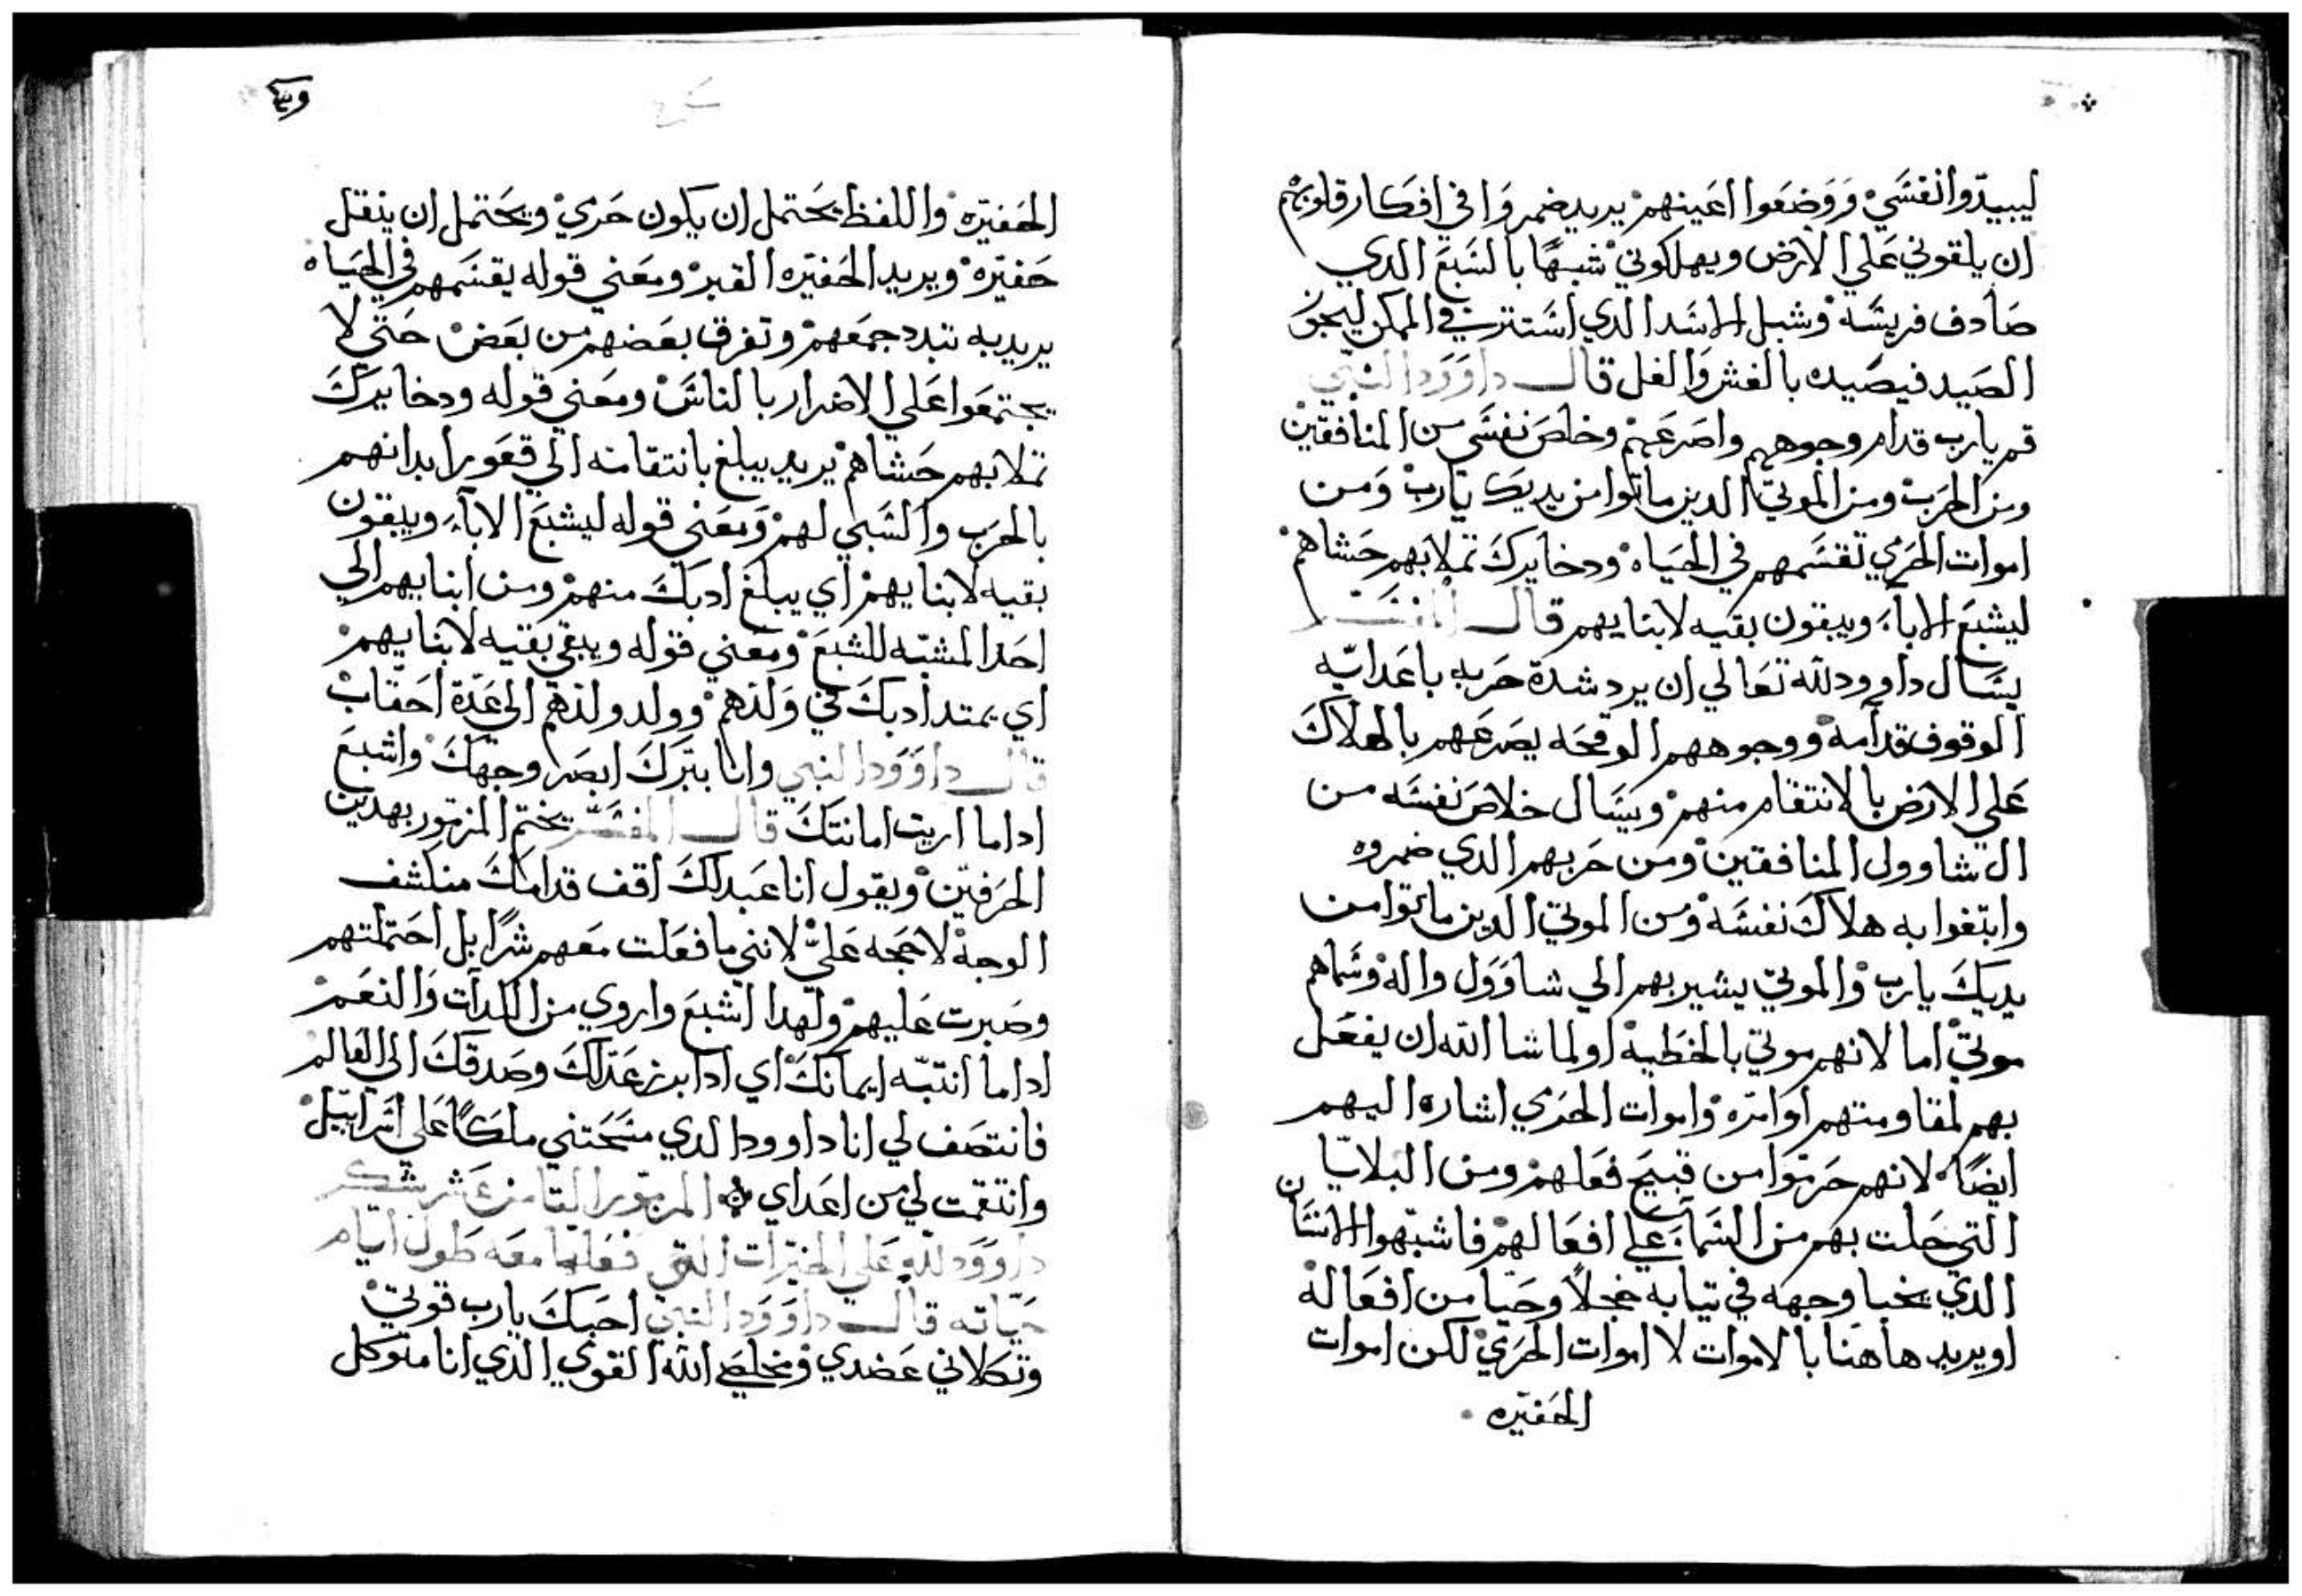 ليبيدوا نفسي ووضعوا اعينهم يريد يضمروا في افكار قلوبهم
ان يلقوني علي الارض ويهلكوني شبهًا بالسبع الدي
صادف فريسه وشبل الاسد الدي استتر في المكمن ليجوز
الصيد فيصيده بالغش والغل قال داوود النبي
قم يارب قدام وجوههم واصرعهم وخلص نفسي من المنافقين
ومن الحرب ومن الموتي الدين ماتوا من يديك يارب ومن
اموات الحري تقسمهم في الحياه ودخايرك تملا بهم حشاهم
ليشبع الاباء ويبقون بقيه لابنايهم قال المفسر
يسال داوود لله تعالي ان يرد شدة حربه باعدايه
الوقوف قدامه ووجوههم الوقحه يصرعهم بالهلاك
علي الارض بالانتقام منهم ويسال خلاص نفسه من
ال شاوول المنافقين ومن حربهم الدي ضمروه
وابتغوا به هلاك نفسه ومن الموتي الدين ماتوا من
يديك يارب والموتي يشير بهم الي شاوول واله وسماهم
موتي اما لانهم موتي بالخطية او لما شا الله ان يفعل
بهم لمقاومتهم اوامره واموات الحري اشاره اليهم
ايضًا لانهم حرتوا من قبيح فعلهم ومن البلايا
التي حلت بهم من السماء علي افعالهم فاشبهوا الانسان
الدي يخبا وجهه في تيابه خجلاً وحيا من افعاله
او يريد هاهنا بالاموات لا اموات الحري لكن اموات
الحفيره
الحفيره واللفظ يحتمل ان يكون حري ويحتمل ان ينقل
حفيره ويريد الحفيره القبر ومعني قوله يقسمهم في الحياه
يريد به تبدد جمعهم وتفرق بعضهم من بعض حتي لا
يجتمعوا علي الاضرار بالناس ومعني قوله ودخايرك
تملا بهم حشاهم يريد يبلغ بانتقامه الي قعور ابدانهم
بالحرب والسبي لهم ومعني قوله ليشبع الاباء ويبقون
بقيه لابنايهم اي يبلغ ادبك منهم ومن ابنايهم الي
احد المشبه للشبع ومعني قوله ويبقي بقيه لابنايهم
اي يمتد ادبك في ولدهم وولد ولدهم الي عدة احقاب
قال داوود النبي وانا ببرك ابصر وجهك واشبع
اداما اريت امانتك قال المفسر يختم المزمور بهدين
الحرفين ويقول انا عبدلك اقف قدامك منكشف
الوجه لا حجه علي لانني ما فعلت معهم شرًا بل احتملتهم
وصبرت عليهم ولهدا اشبع واروي من اللدات والنعم
اداما انتبه ايمانك اي ادا برز عدلك وصدقك الي العالم
فانتصف لي انا داوود الدي مسحتني ملكًا علي اسراييل
وانتقمت لي من اعداي المزمور التامن عشر شكر
داوود لله علي الخيرات التي فعلها معه طول ايام
حياته قال داوود النبي احبك يارب قوتي
وتكلاني عضدي ومخلصي الله القوي الدي انا متوكل